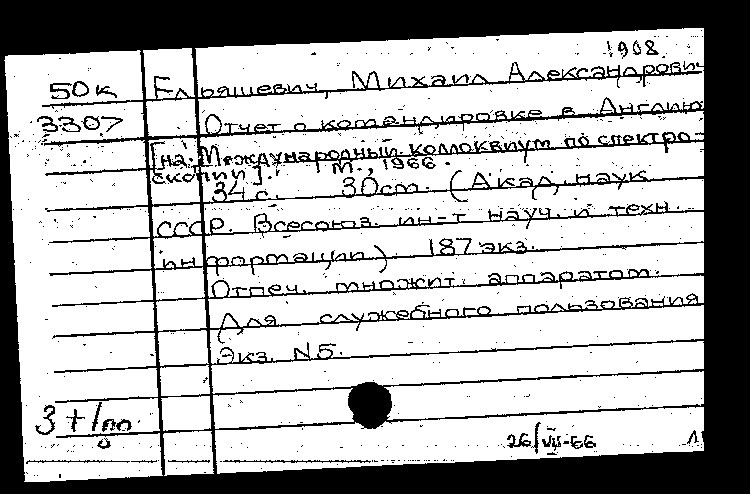 1908
50к Ельяшевич, Михаил Александрович
3307 Отчет о командировке в Англию
[на Международный коллоквиум по спектро-
скопии]. М., 1966.
34 с. 30см. (Акад. наук
СССР. Всесоюз. ин-т науч. и техн.
информации). 187 экз.
Отпеч. множит. аппаратом.
Для служебного пользования
Экз. N5.
3+1
26/VII-66